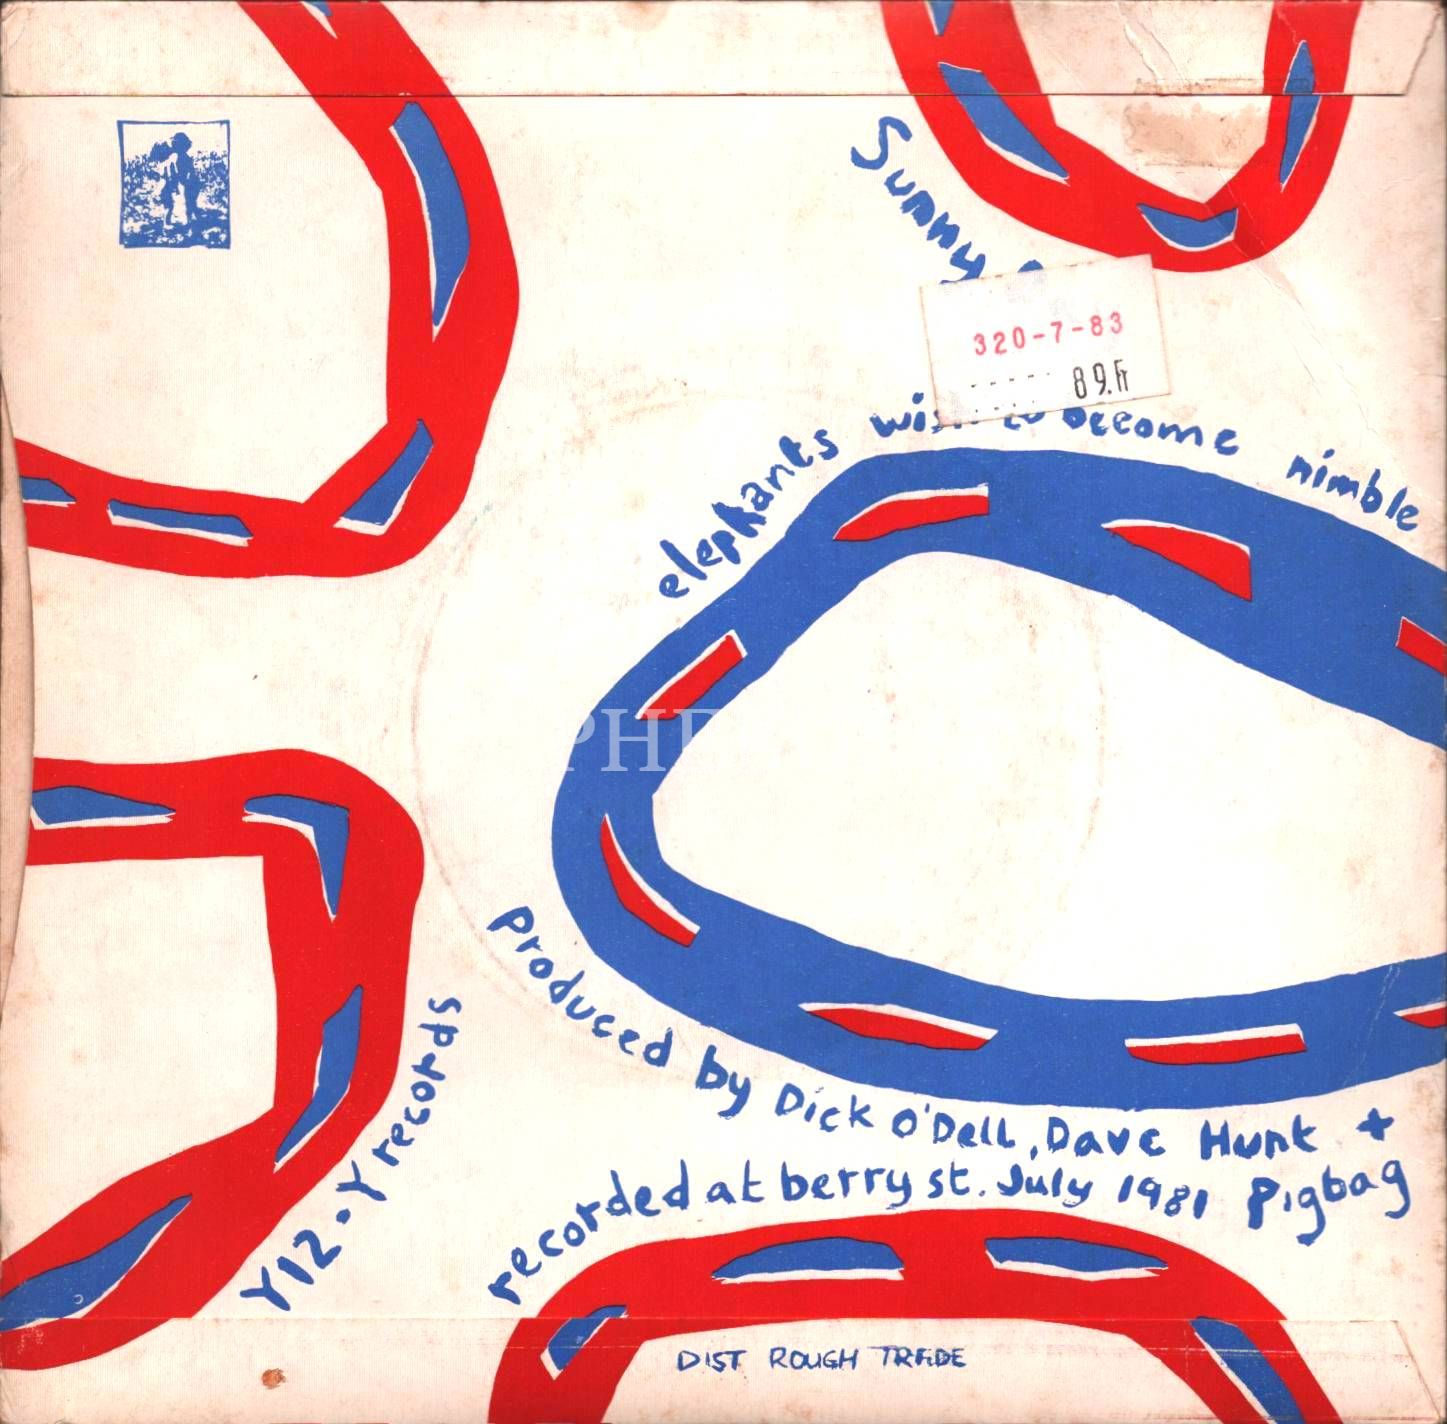 Sunny
320-7-83
89.Fr
elephants to become nimble
produced by Dick O'Dell, Dave Hunt +
recorded at berry st. July 1981 Pigbag
Y12 · Y records
DIST ROUGH TRADE